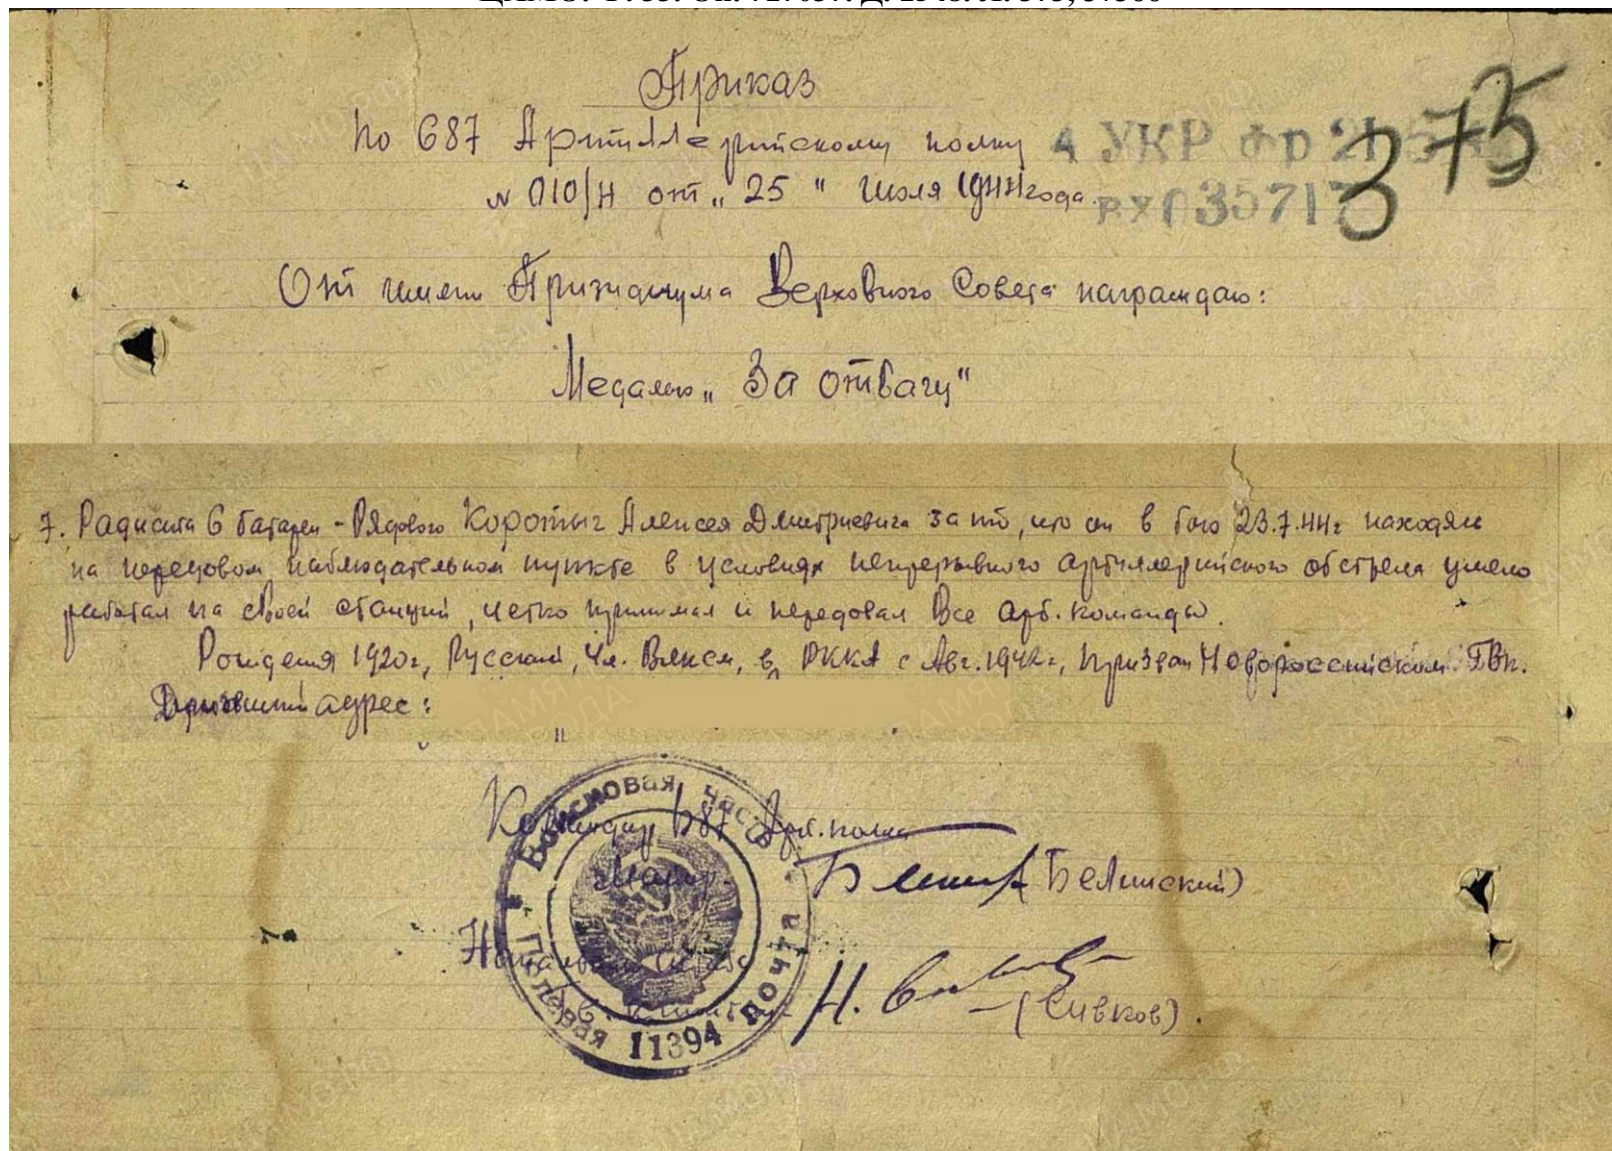 Приказ
по 687 Артиллерийскому полку
№ 010/Н от "25" июля 1944 года.
4 УКР фр
вх 035717
375
От имени Призидиума Верховного Совета награждаю:
Медалью "За отвагу"
7. Радиста 6 батареи - Рядового Коротыг Алексея Дмитриевича за то, что он в бою 23.7.44г находясь
на передовом наблюдательном пункте в условиях непрерывного артиллерийского обстрела умело
работал на своей станции, четко принимал и передовал все арт. команды.
Рождения 1920г, Русский, Чл. Влксм, в РККА с Авг. 1942г, призван Новороссийском ГВК.
Домашний адрес:
Командир 687 Арт. полка
Майор
(Белинский)
Начальник штаба
(Сивков).
Войсковая часть
Полевая почта
11394